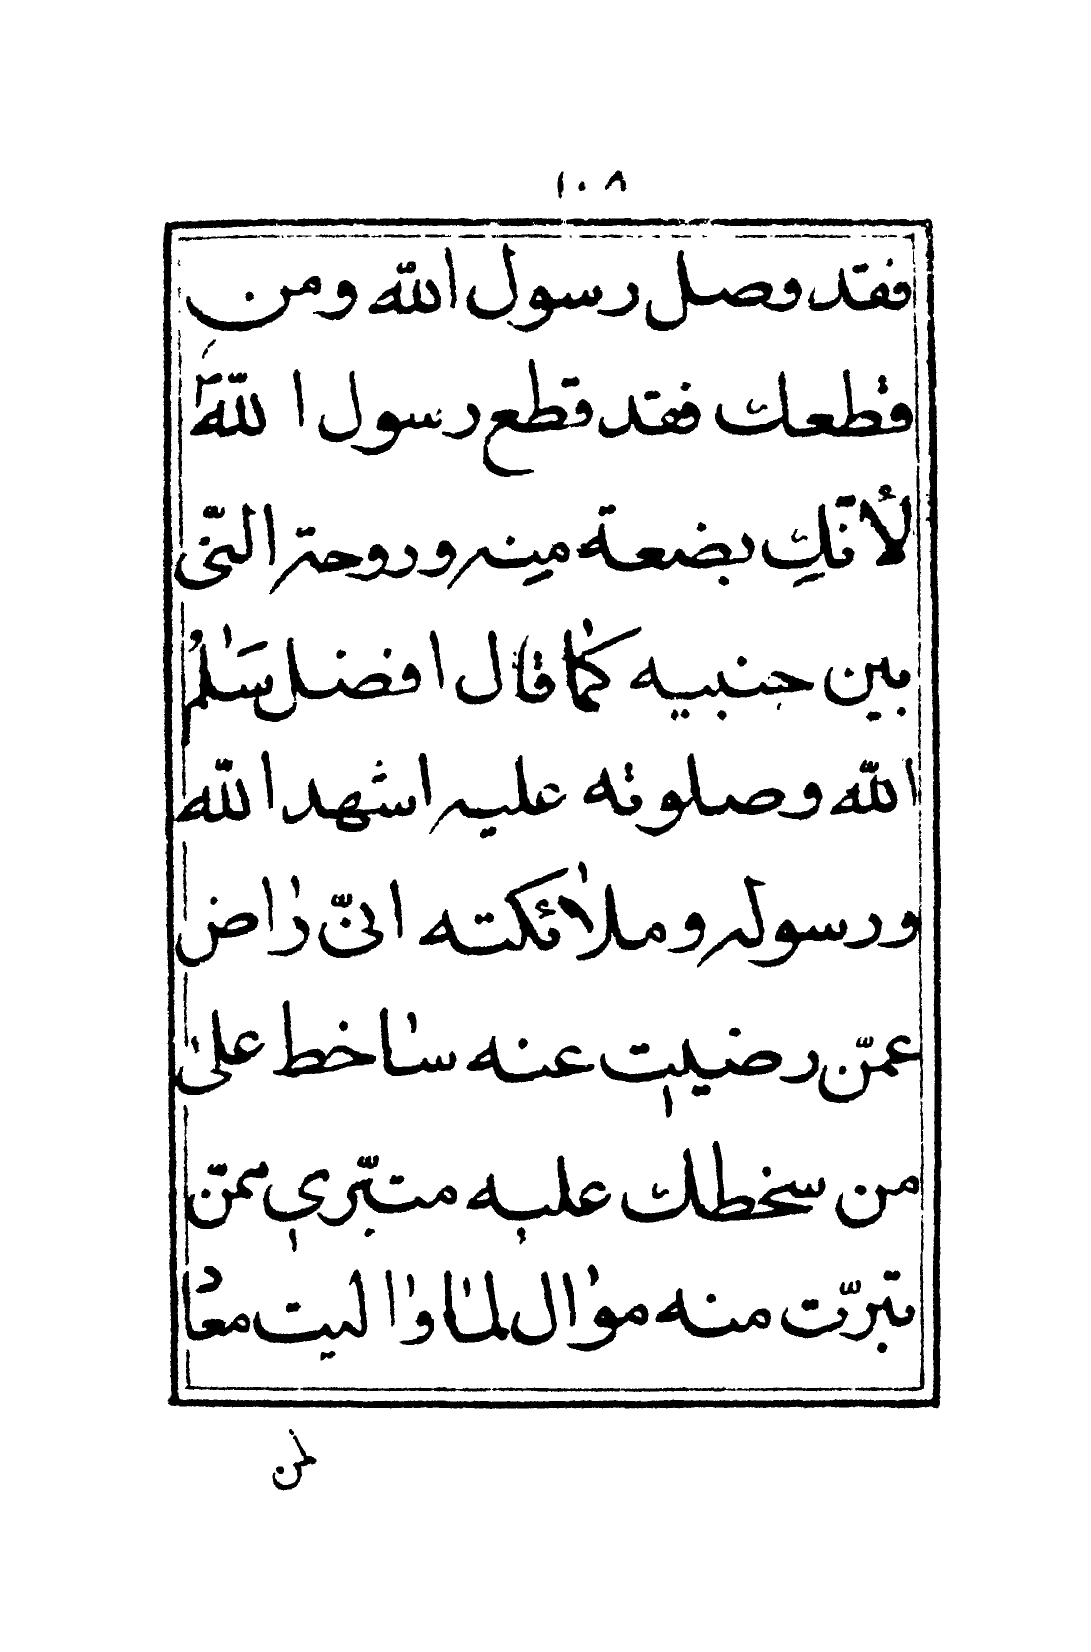 ١٠٨
فقد وصل رسول الله ومن
قطعك فقد قطع رسول الله
لأنّكِ بضعة مِنه وروحه الّتى
بين جنبيه كما قال افضل سَلٰمُ
الله وصلوته عليه اشهد الله
ورسوله وملائكته انّى رٰاض
عمّن رضيت عنه سٰاخط علىٰ
من سخطك عليه متبّرئ ممّن
تبرّت منه موٰال لمٰا وٰاليت معٰا
لمن